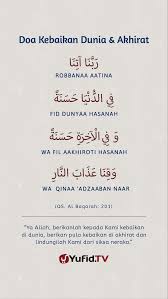 Doa Kebaikan Dunia & Akhirat
رَبَّنَا آتِنَا
ROBBANAA AATINA
فِي الدُّنْيَا حَسَنَةً
FID DUNYAA HASANAH
وَ فِي الْآخِرَةِ حَسَنَةً
WA FIL AAKHIROTI HASANAH
وَقِنَا عَذَابَ النَّارِ
WA QINAA 'ADZAABAN NAAR
(QS. Al Baqarah: 201)
"Ya Allah, berikanlah kepada Kami kebaikan
di dunia, berikan pula kebaikan di akhirat dan
lindungilah Kami dari siksa neraka."
YUFID.TV